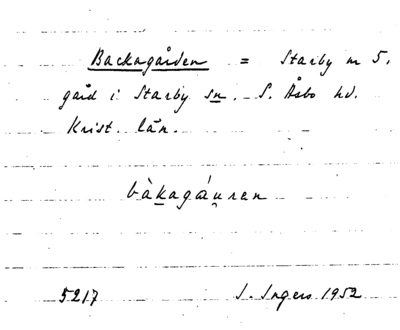 Backagården = Starby nr 5.
gård i Starby sn. S. Åsbo hd.
Krist. län.
bàkagáu̯ren
5217 I. Ingers 1952